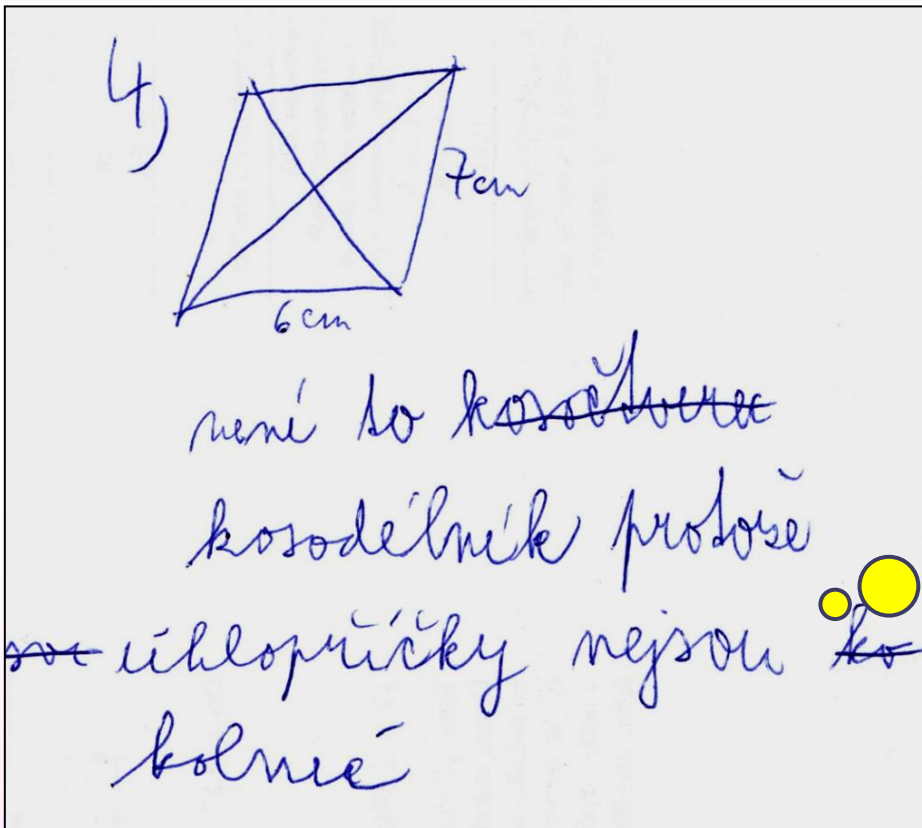 4)
7cm
6cm
není to kosočtverec
kosodélník protože
úhlopříčky nejsou ko
kolmé